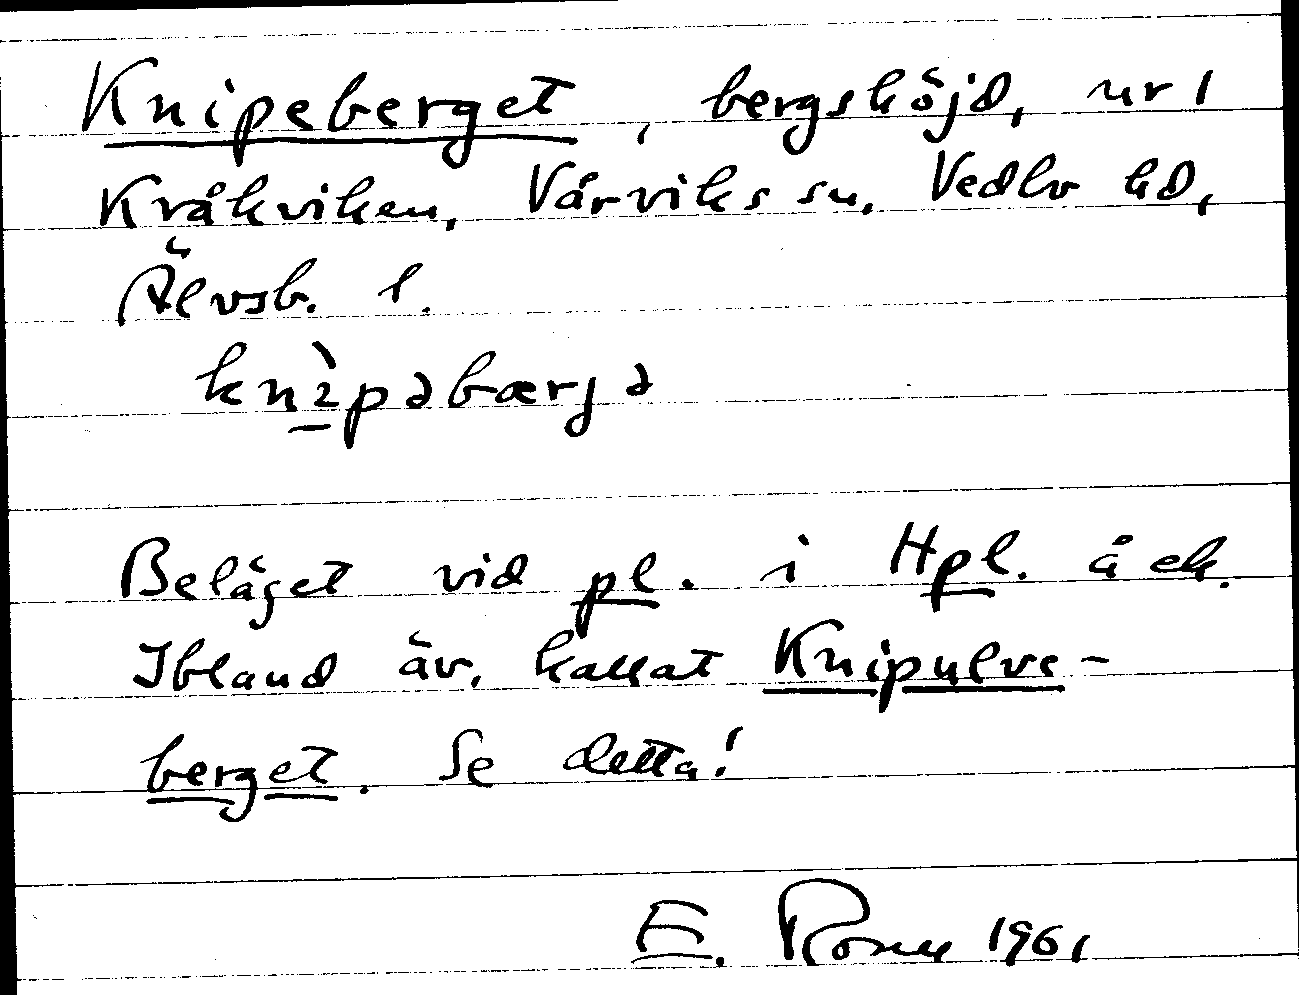 Knipeberget, bergshöjd, nr 1
Kråkviken, Vårviks sn, Vedbo hd,
Älvsb. l.
knìpəbærjə
Beläget vid pl. i Hpl. å ek.
Ibland äv. kallat Knipulve-
berget. Se detta!
E. 1961